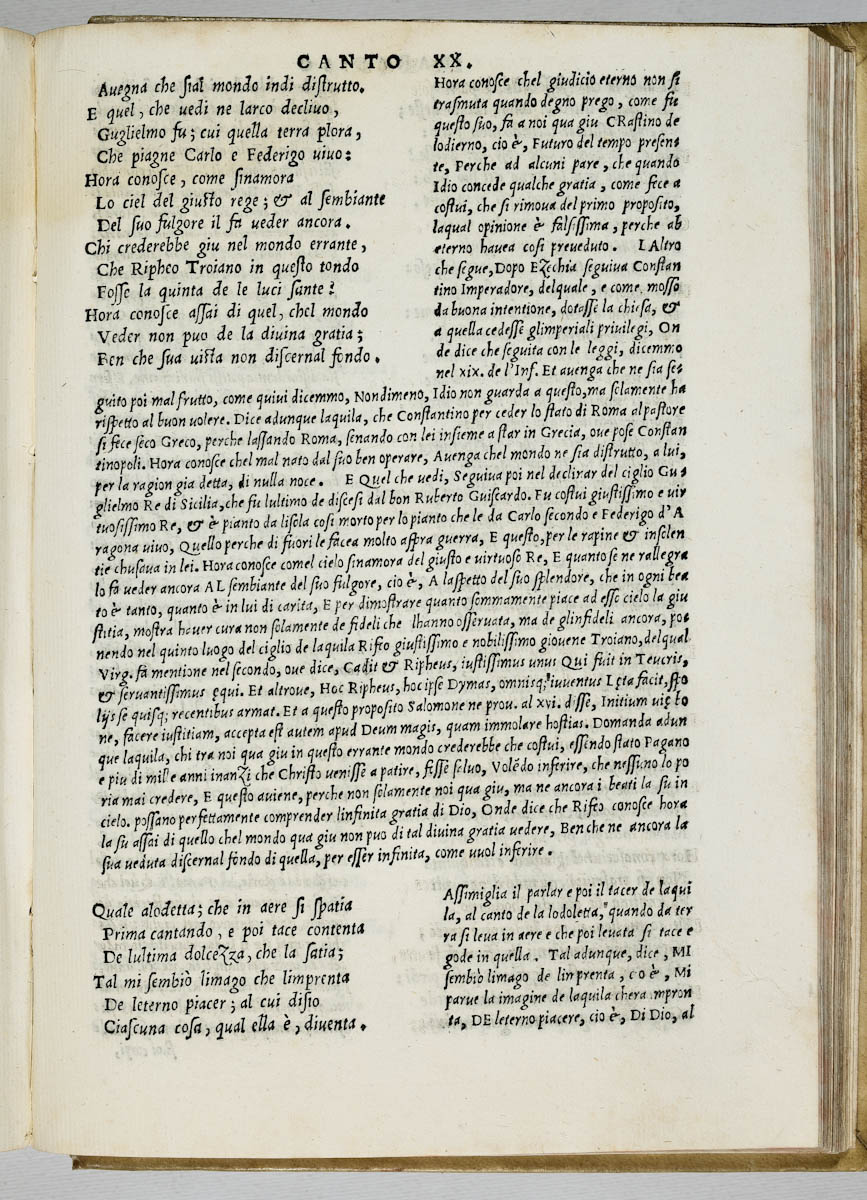 CANTO XX.
Auegna che sial mondo indi distrutto.
E quel, che uedi ne larco decliuo,
Guglielmo fu; cui quella terra plora,
Che piagne Carlo e Federigo uiuo:
Hora conosce, come sinamora
Lo ciel del giusto rege; & al sembiante
Del suo fulgore il fa ueder ancora.
Chi crederebbe giu nel mondo errante,
Che Ripheo Troiano in questo tondo
Fosse la quinta de le luci sante?
Hora conosce assai di quel, chel mondo
Veder non puo de la diuina gratia;
Ben che sua uista non discernal fondo.
Hora conosce chel giudicio eterno non si
trasmuta quando degno prego, come fu
questo suo, fa a noi qua giu CRastino de
lodierno, cio è, Futuro del tempo presen=
te, Perche ad alcuni pare, che quando
Idio concede qualche gratia, come fece a
costui, che si rimoua del primo proposito,
laqual opinione è falsissima, perche ab
eterno hauea cosi preueduto. LAltro
che segue, Dopo Ezechia seguiua Constan
tino Imperadore, delquale, e come mosso
da buona intentione, dotasse la chiesa, &
a quella cedesse glimperiali priuilegi, On
de dice che seguita con le leggi, dicemmo
nel xix. de l'Inf. Et auenga che ne sia se=
guito poi mal frutto, come quiui dicemmo, Nondimeno, Idio non guarda a questo, ma solamente ha
rispetto al buon uolere. Dice adunque laquila, che Constantino per ceder lo stato di Roma al pastore
si fece seco Greco, perche lassando Roma, senando con lei insieme a star in Grecia, oue pose Constan
tinopoli. Hora conosce chel mal nato dal suo ben operare, Auenga chel mondo ne sia distrutto, a lui,
per la ragion gia detta, di nulla noce. E Quel che uedi, Seguiua poi nel declinar del ciglio Gu=
glielmo Re di Sicilia, che fu lultimo de discesi dal bon Ruberto Guiscardo. Fu costui giustissimo e uir
tuosissimo Re, & è pianto da lisola cosi morto per lo pianto che le da Carlo secondo e Federigo d'A
ragona uiuo, Quello perche di fuori le facea molto aspra guerra, E questo, per le rapine & insolen
tie chusaua in lei. Hora conosce comel cielo sinamora del giusto e uirtuoso Re, E quanto se ne rallegra
lo fa ueder ancora AL sembiante del suo fulgore, cio è, A laspetto del suo splendore, che in ogni bea
to è tanto, quanto è in lui di carita, E per dimostrare quanto sommamente piace ad esso cielo la giu
stitia, mostra hauer cura non solamente de fideli che lhanno osseruata, ma de glinfideli ancora, po=
nendo nel quinto luogo del ciglio de laquila Rifeo giustissimo e nobilissimo giouene Troiano, delqual
Virg. fa mentione nel secondo, oue dice, Cadit & Ripheus, iustissimus unus Qui fuit in Teucris,
& seruantissimus ęqui. Et altroue, Hoc Ripheus, hoc ipse Dymas, omnisq; iuuentus Lęta facit, spo
lijs se quisq; recentibus armat. Et a questo proposito Salomone ne prou. al xvi. disse, Initium uię bo
ne, facere iustitiam, accepta est autem apud Deum magis, quam immolare hostias. Domanda adun
que laquila, chi tra noi qua giu in questo errante mondo crederebbe che costui, essendo stato Pagano
e piu di mille anni inanzi che Christo uenisse a patire, fusse saluo, Volēdo inferire, che nessuno lo po
ria mai credere, E questo auiene, perche non solamente noi qua giu, ma ne ancora i beati la su in
cielo. possano perfettamente comprender linfinita gratia di Dio, Onde dice che Rifeo conosce hora
la su assai di quello chel mondo qua giu non puo di tal diuina gratia uedere, Benche ne ancora la
sua ueduta discernal fondo di quella, per esser infinita, come uuol inferire.
Quale alodetta; che in aere si spatia
Prima cantando, e poi tace contenta
De lultima dolcezza, che la satia;
Tal mi sembiò limago che limprenta
De leterno piacer; al cui disio
Ciascuna cosa, qual ella è, diuenta.
Assimiglia il parlar e poi il tacer de laqui
la, al canto de la lodoletta, quando da ter
ra si leua in aere e che poi leuata si tace e
gode in quella. Tal adunque, dice, MI
sembiò limago de limprenta, cio è, Mi
parue la imagine de laquila chera impron
ta, DE leterno piacere, cio è, Di Dio, al